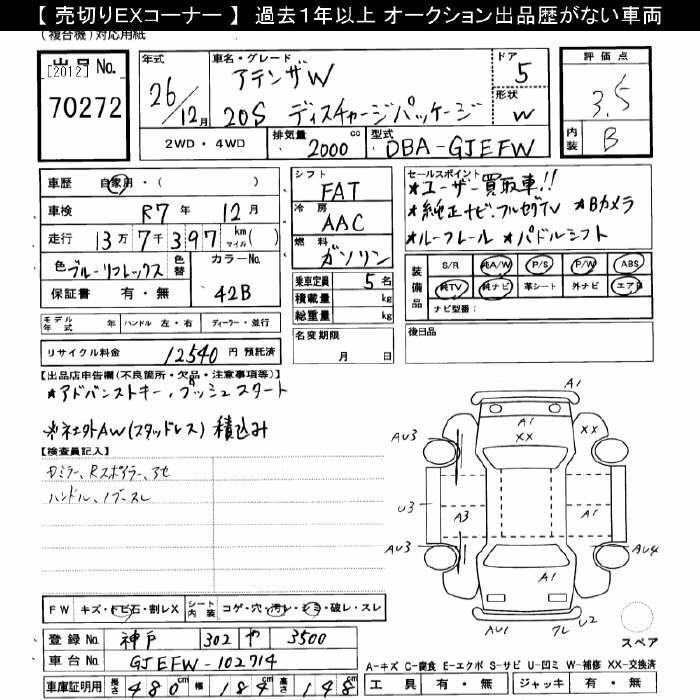 【 売切りEXコーナー 】 過去１年以上 オークション出品歴がない車両
(複合機)対応用紙
出品No.
[2012]
70272
年式
26/12月
車名・グレード
アテンザW
20S ディスチャージパッケージ
ドア
5
形状
W
評価点
3.5
内装
B
2WD・4WD
排気量
2000cc
型式
DBA-GJEFW
車歴 自家用・( )
車検 R7年 12月
走行 13万7千397 km マイル( )
色 ブルーリフレックス 色替
カラーNo. 42B
保証書 有・無
シフト
FAT
冷房
AAC
燃料
ガソリン
乗車定員 5名
積載量 kg
総重量 kg
名変期限
月 日
セールスポイント
★ユーザー買取車!!
★純正ナビ・フルセグTV ★Bカメラ
★ルーフレール ★パドルシフト
装備品
S/R 純A/W P/S P/W ABS
純TV 純ナビ 革シート 外ナビ エアB
ナビ型番：
モデル年式 年 ハンドル 左・右 ディーラー・並行
後日品
リサイクル料金 12540円 預託済
【出品店申告欄(不良箇所・欠品・注意事項等)】
★アドバンストキー、プッシュスタート
※社外AW(スタッドレス)積込み
【検査員記入】
ハンドル、ノブスレ
A1
A1
XX
XX
AU3
U3
A3
A1
AU3
AU4
A1
AU1
U2
スペア
FW キズ・トビ石・割レX シート内装 コゲ・穴・汚レ・シミ・破レ・スレ
登録No. 神戸 302 や 3500
車台No. GJEFW-102714
車庫証明用 長さ 480cm 幅 184cm 高さ 148
A-キズ C-腐食 E-エクボ S-サビ U-凹ミ W-補修 XX-交換済
工具 有・無 ジャッキ 有・無